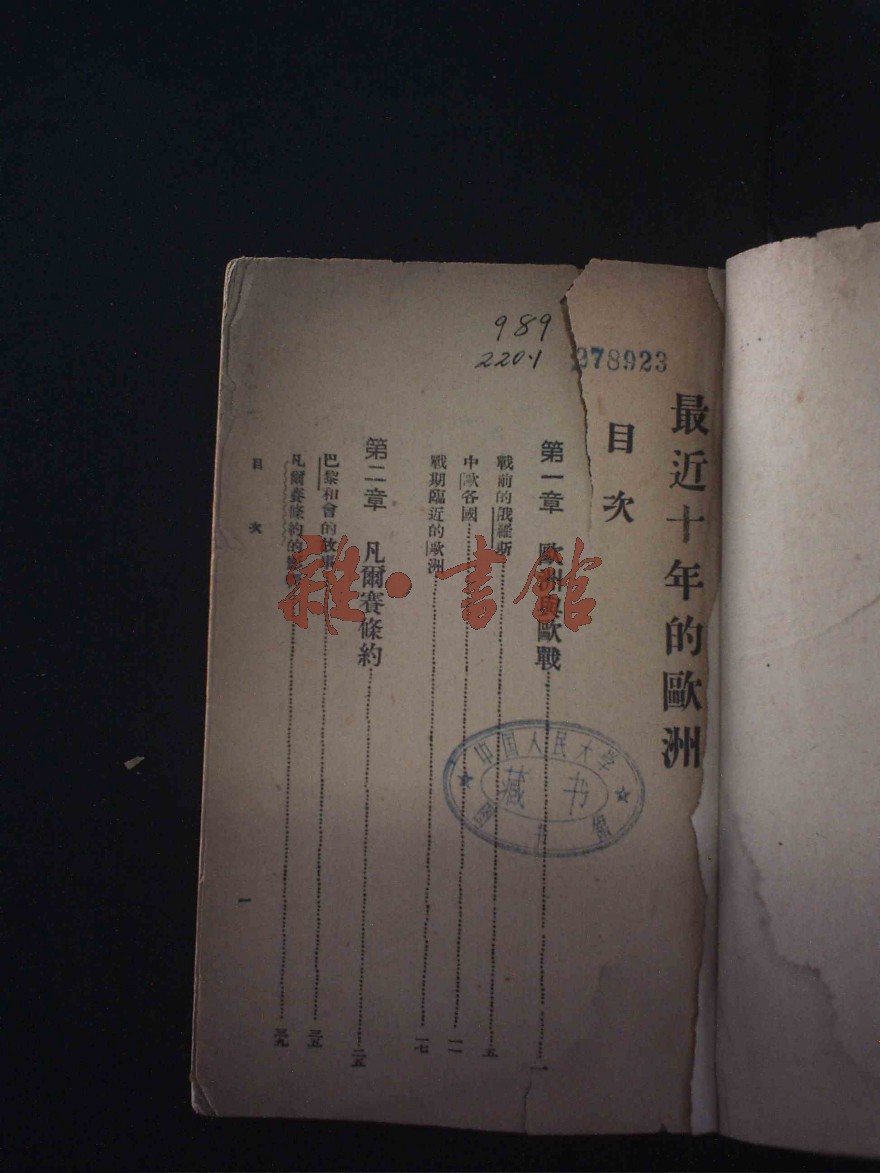 989
220·1
278923
最近十年的歐洲
目次
第一章 歐洲與歐戰 一
戰前的俄羅斯 五
中歐各國 一一
戰期臨近的歐洲 一七
第二章 凡爾賽條約 二五
巴黎和會的故事 三五
凡爾賽條約的 三九
目次
一
中国人民大学
藏书
圖书館
雜·書館